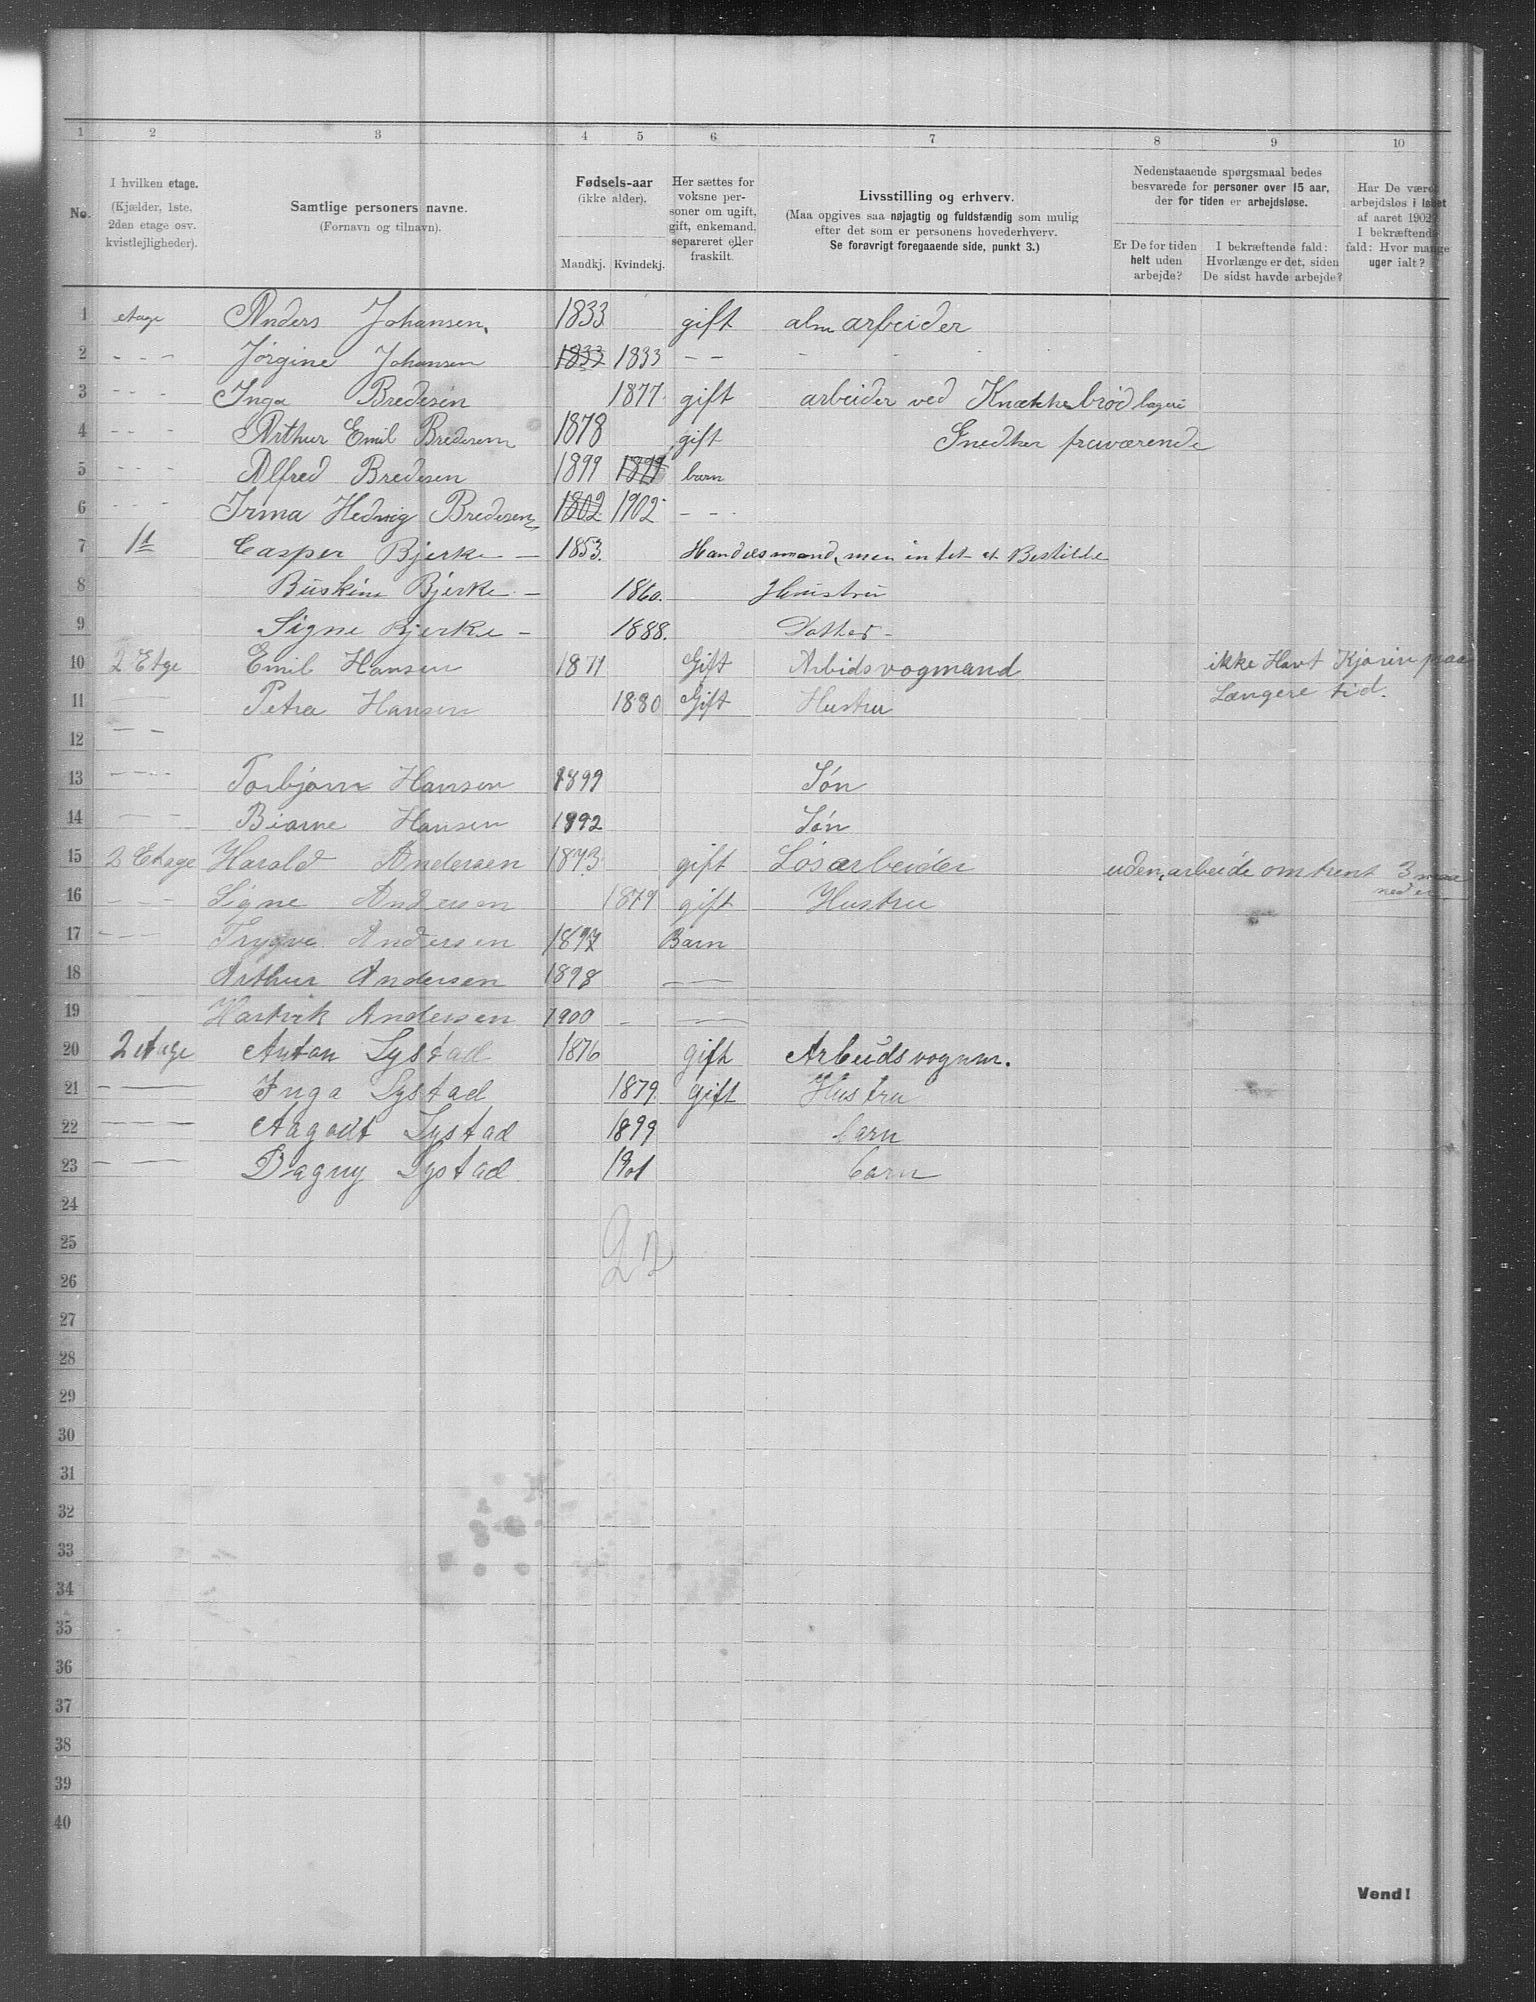 1 2 3 4 5 6 7 8 9 10
No.
I hvilken etage.
(Kjælder, 1ste,
2den etage osv.
kvistlejligheder).
Samtlige personers navne.
(Fornavn og tilnavn).
Fødsels-aar
(ikke alder).
Mandkj. Kvindekj.
Her sættes for
voksne per-
soner om ugift,
gift, enkemand,
separeret eller
fraskilt.
Livsstilling og erhverv.
(Maa opgives saa nøjagtig og fuldstændig som mulig
efter det som er personens hovederhverv.
Se forøvrigt foregaaende side, punkt 3.)
Nedenstaaende spørgsmaal bedes
besvarede for personer over 15 aar,
der for tiden er arbejdsløse.
Er De for tiden
helt uden
arbejde?
I bekræftende fald:
Hvorlænge er det, siden
De sidst havde arbejde?
Har De været
arbejdsløs i løbet
af aaret 1902?
I bekræftende
fald: Hvor mange
uger ialt?
1 etage Anders Johansen, 1833 gift alm arbeider
2 - - - Jørgine Johansen 1833 1833 - - - - -
3 - - - Inga Bredesen 1877 gift arbeider ved Knækkebrød bageri
4 - - - Arthur Emil Bredesen 1878 gift Snedker fraværende
5 - - - Alfred Bredesen 1899 1899 barn
6 - - - Irma Hedvig Bredesen 1802 1902 - - -
7 1st Casper Bjerke - 1853. Handelsmand, men intet at Bestille
8 Bjerke - 1860. Hustru
9 Signe Bjerke - 1888. Datter -
10 2 Etge Emil Hansen 1871 Gift Arbidsvogmand ikke Havt Kjørin paa
11 Petra Hansen 1880 Gift Hustru Længere tid.
12 - - -
13 - - - Torbjørn Hansen 1899 Søn
14 - - - Biarne Hansen 1892 Søn
15 2 Etage Harald Andersen 1873 gift Løsarbeider uden arbeide omtrent 3 maa
neder
16 - - - Signe Andersen 1879 gift Hustru
17 - - - Trygve Andersen 1897 Barn
18 Arthur Andersen 1898 - -
19 Hartvik Andersen 1900 - - -
20 2 etage Anton Lystad 1876 gift Arbeidsvognm.
21 - - - Inga Lystad 1879 gift Hustru
22 - - - Aagodt Lystad 1899 barn
23 - - - Dagny Lystad 1901 barn
24
25 22
26
27
28
29
30
31
32
33
34
35
36
37
38
39
40
Vend!